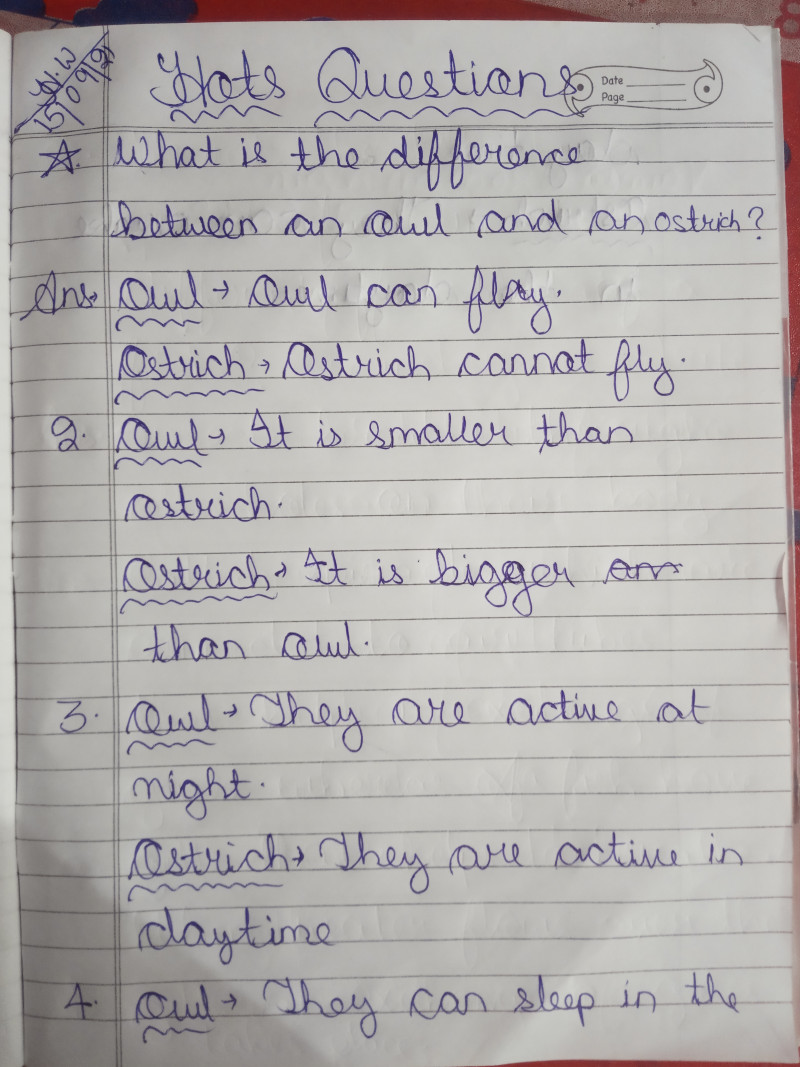 H.W
15/09/21
Hots Questions
Date
Page
What is the difference
between an owl and an ostrich?
Ans→ Owl → Owl can flay.
Ostrich → Ostrich cannot fly.
2. Owl → It is smaller than
ostrich.
Ostrich → It is bigger
than owl.
3. Owl → They are active at
night.
Ostrich → They are active in
daytime
4. Owl → They can sleep in the